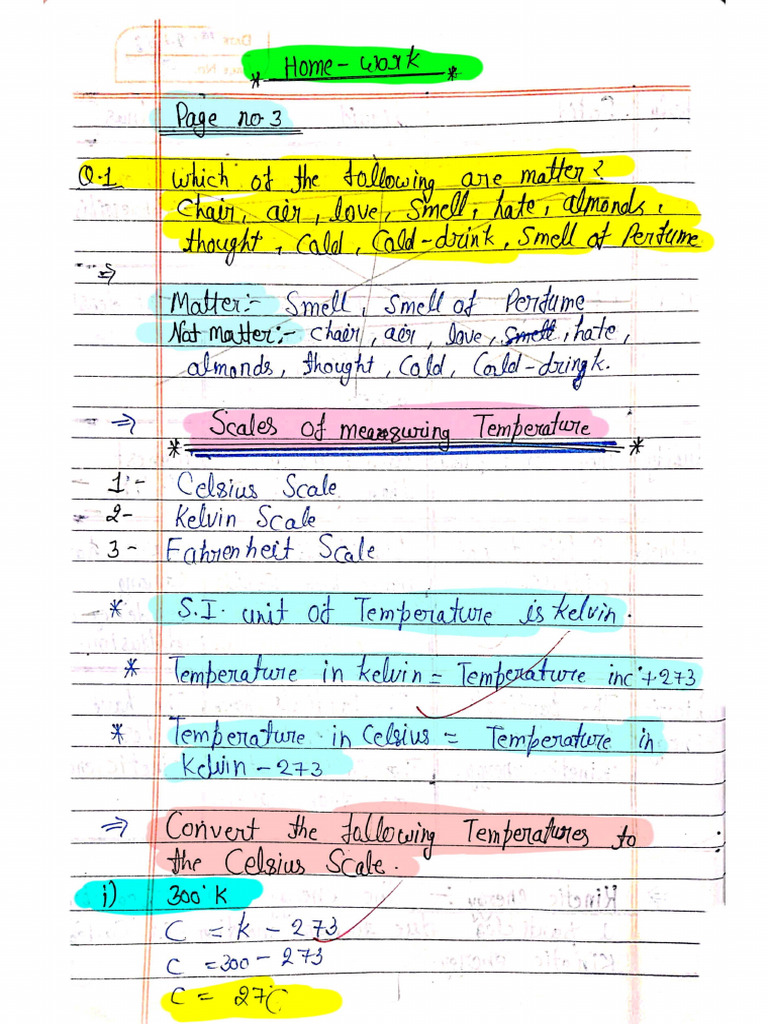 * Home-work *
Page no 3
Q.1 Which of the following are matter?
Chair, air, love, Smell, hate, almonds,
thought, Cold, Cold-drink, Smell of Perfume
⇒
Matter:- Smell, Smell of Perfume
Not matter:- chair, air, love, smell, hate,
almonds, thought, Cold, Cold-dringk.
⇒ Scales of measuring Temperature
* *
1:- Celsius Scale
2- Kelvin Scale
3- Fahrenheit Scale
* S.I. unit of Temperature is kelvin.
* Temperature in kelvin = Temperature in c° + 273
* Temperature in Celsius = Temperature in
Kelvin - 273
⇒ Convert the following Temperatures to
the Celsius Scale.
i) 300° K
C = k - 273
C = 300 - 273
C = 27°C